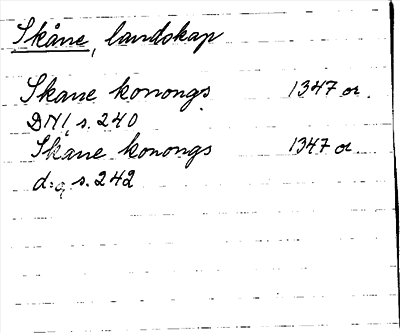 Skåne, landskap
Skane konongs 1347 or.
DN1, s. 240
Skane konongs 1347 or.
d:o, s. 242